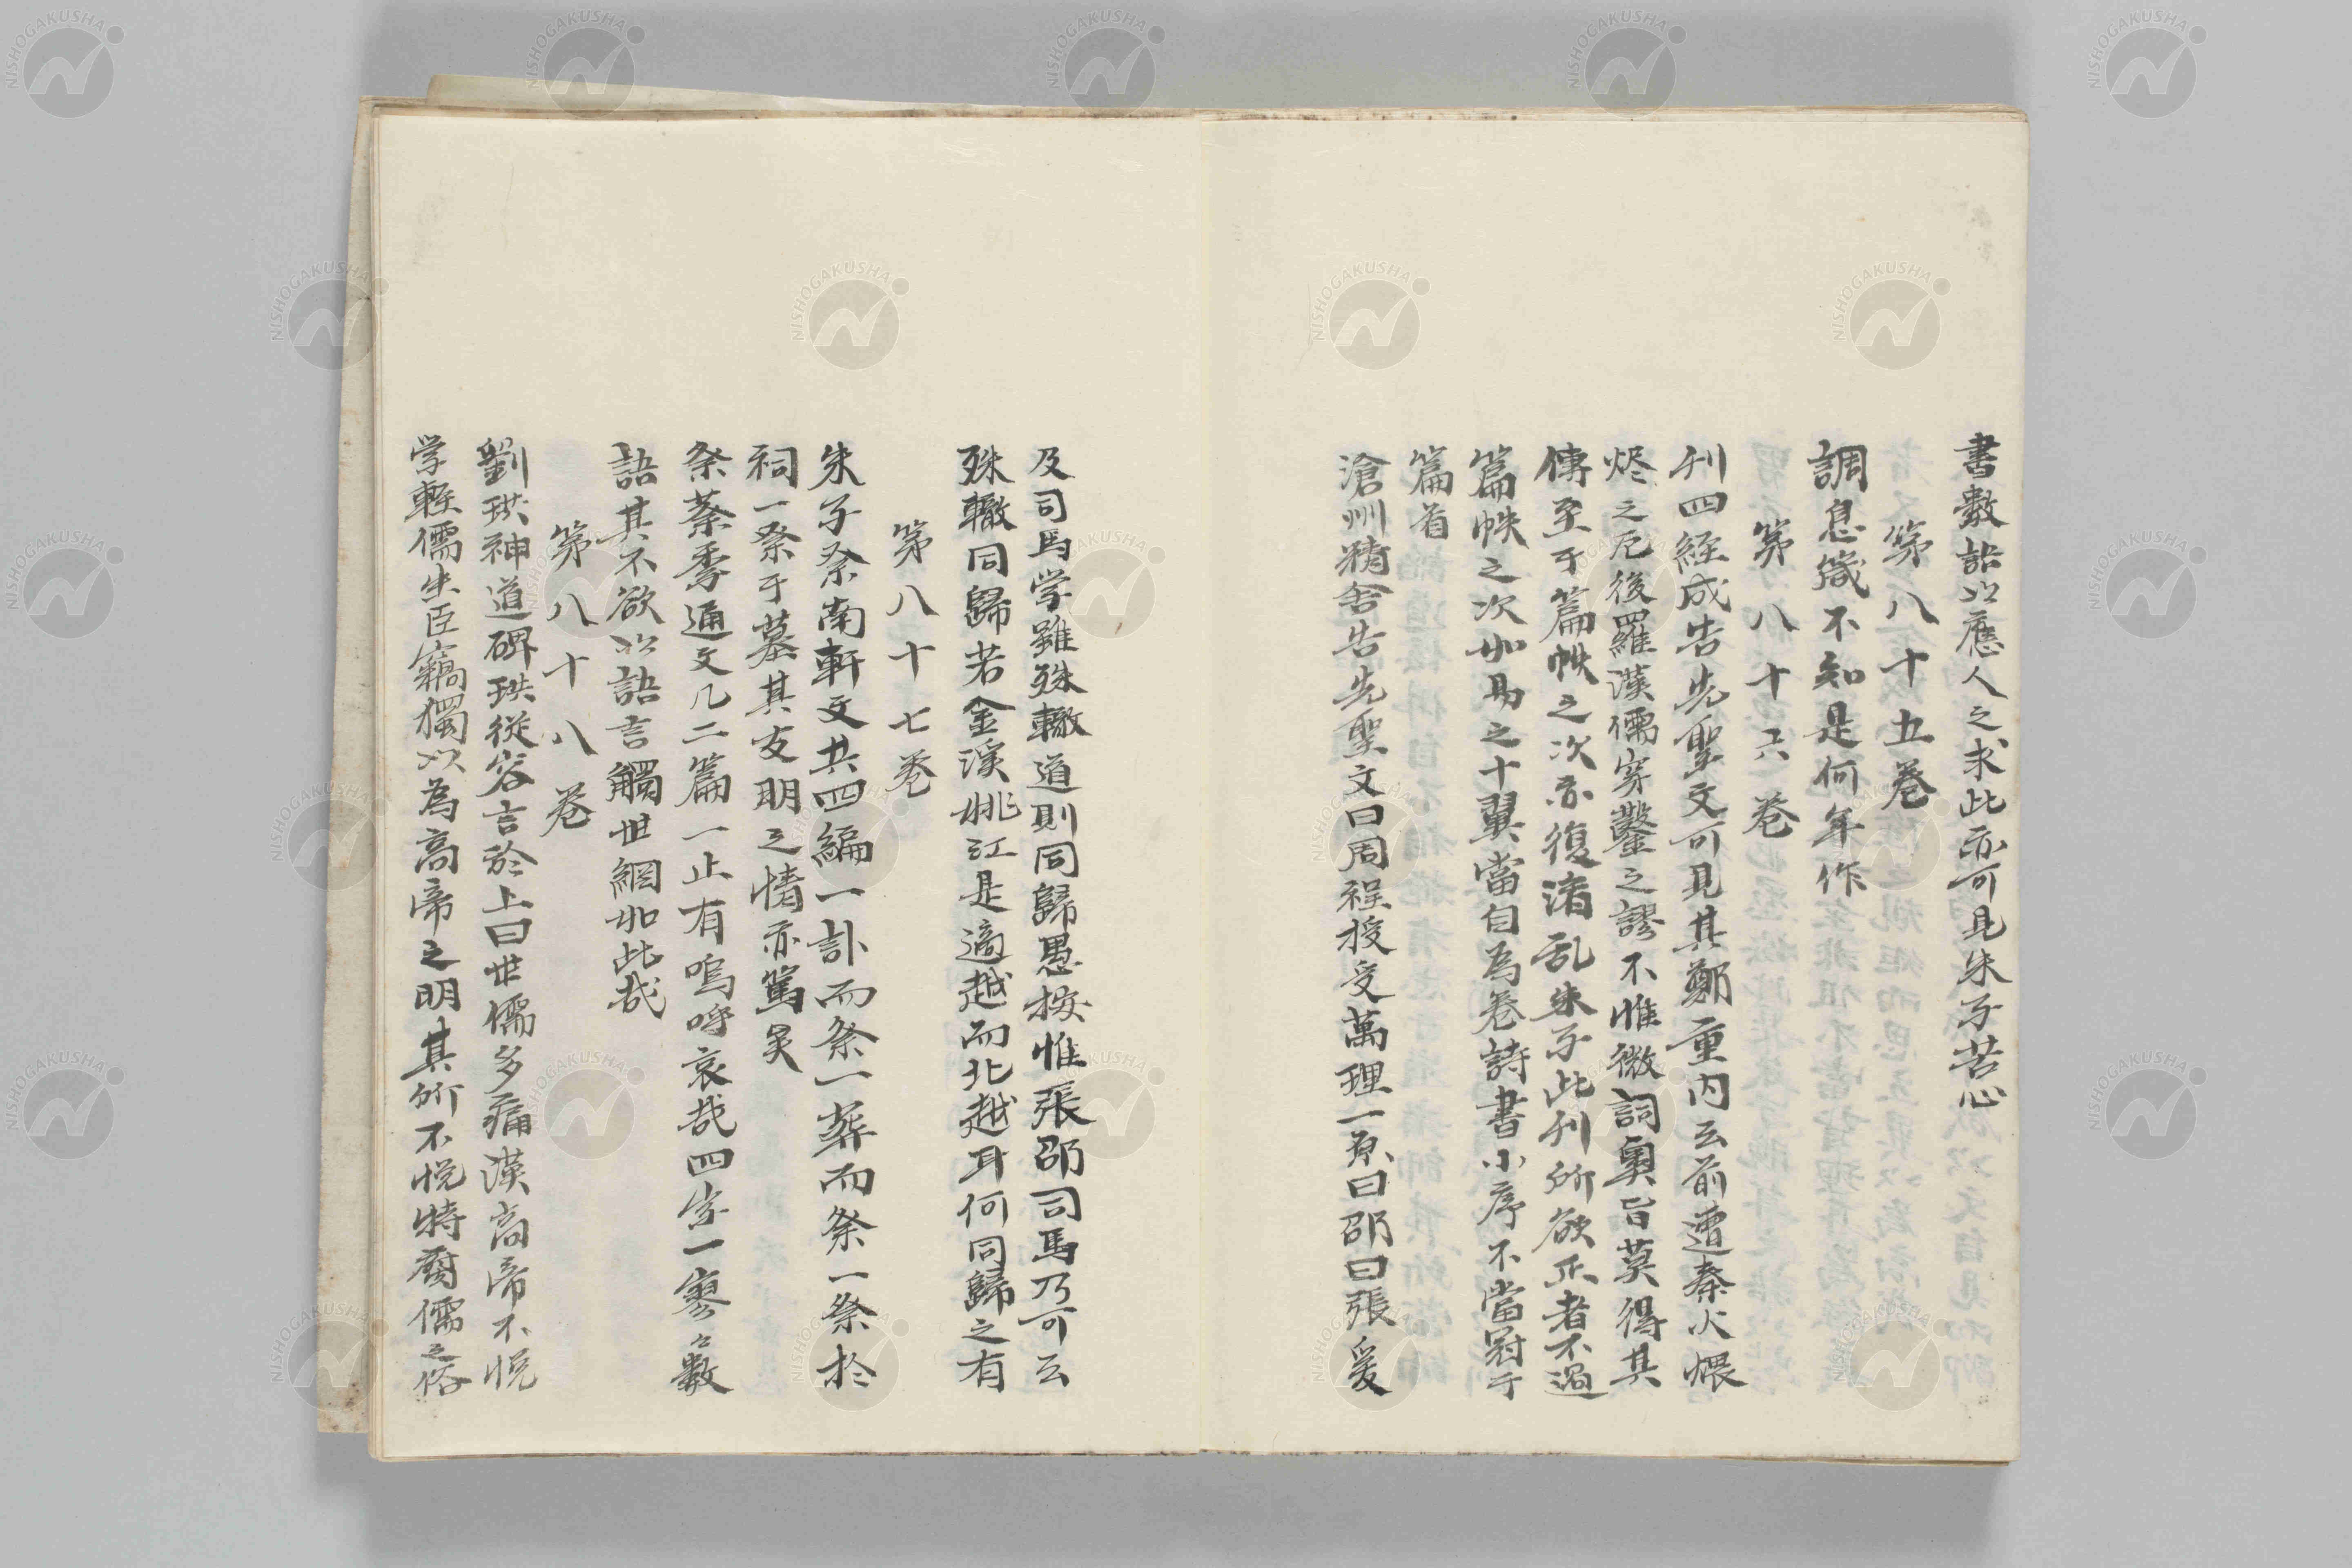 書數詒以應人之求此亦可見朱子苦心
第八十五卷
調息箴不知是何年作
第八十六卷
刊四經成告先聖文可見其鄭重内云前遭秦火煨
烬之厄後羅漢儒穿鑿之謬不惟微詞奧旨莫得其
傳至于篇帙之次亦復淆乱朱子此刊所欲正者不過
篇帙之次如易之十翼當自為卷詩書小序不當冠于
篇首
滄州精舍告先聖文曰周程授受萬理一原曰邵曰張爰
及司馬学雖殊轍道則同歸愚按惟張邵司馬乃可云
殊轍同歸若金溪姚江是適越而北越耳何同歸之有
第八十七卷
朱子祭南軒文共四編一訃而祭一葬而祭一祭於
祠一祭于墓其友朋之情亦篤矣
祭蔡季通文凡二篇一止有嗚呼哀哉四字一寥々數
語其不欲以語言觸世網如此哉
第八十八卷
劉珙神道碑珙從容言於上曰世儒多痛漢高帝不悅
学輕儒生臣竊獨以為高帝之明其所不悅特腐儒之俗
NISHOGAKUSHA